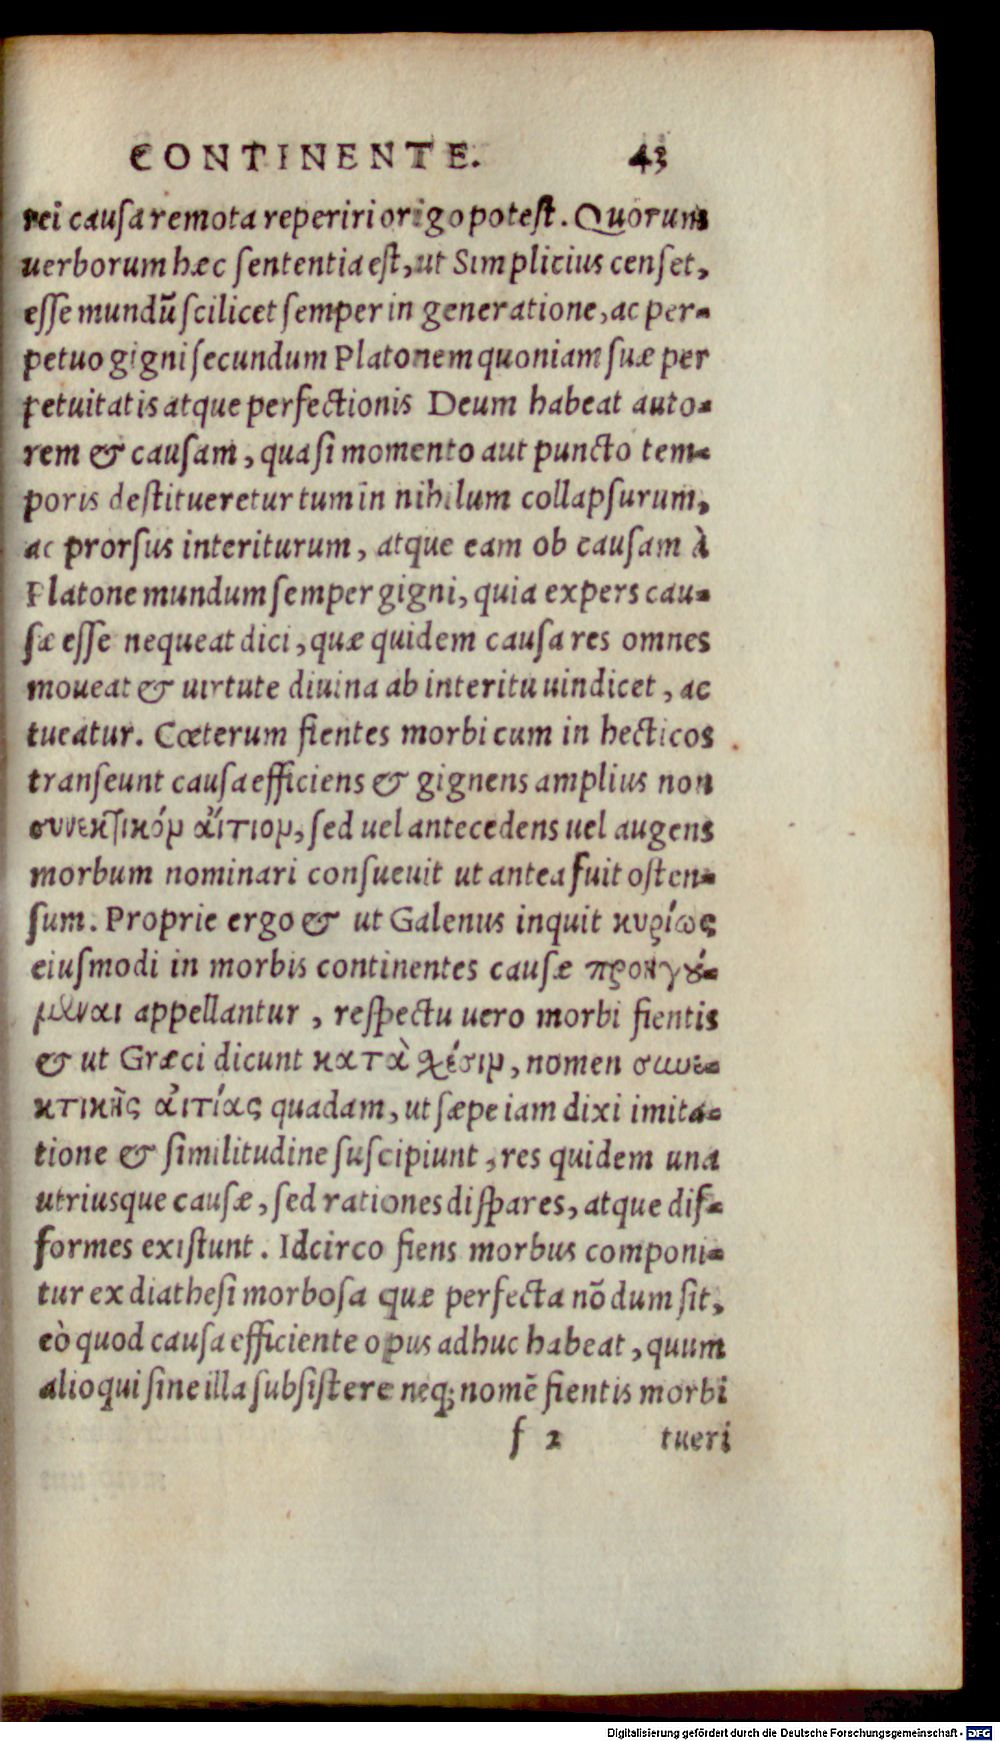 CONTINENTE. 43
rei causa remota reperiri origo potest. Quorum
uerborum hæc sententia est, ut Simplicius censet,
esse mundū scilicet semper in generatione, ac per-
petuo gigni secundum Platonem quoniam suæ per
petuitatis atque perfectionis Deum habeat auto-
rem & causam, quasi momento aut puncto tem-
poris destitueretur tum in nihilum collapsurum,
ac prorsus interiturum, atque eam ob causam à
Platone mundum semper gigni, quia expers cau-
sæ esse nequeat dici, quæ quidem causa res omnes
moueat & uirtute diuina ab interitu uindicet, ac
tueatur. Cœterum fientes morbi cum in hecticos
transeunt causa efficiens & gignens amplius non
συνεκτικόν ἄιτιον, sed uel antecedens uel augens
morbum nominari consueuit ut antea fuit osten-
sum. Proprie ergo & ut Galenus inquit κυρίως
eiusmodi in morbis continentes causæ προηγού-
μεναι appellantur, respectu uero morbi fientis
& ut Græci dicunt κατὰ χέσιν, nomen συνε-
κτικῆς ἀιτίας quadam, ut sæpe iam dixi imita-
tione & similitudine suscipiunt, res quidem una
utriusque causæ, sed rationes dispares, atque dif-
formes existunt. Idcirco fiens morbus componi-
tur ex diathesi morbosa quæ perfecta nō dum sit,
eò quod causa efficiente opus adhuc habeat, quum
alioqui sine illa subsistere neq; nomē fientis morbi
f 2 tueri
Digitalisierung gefördert durch die Deutsche Forschungsgemeinschaft - DFG